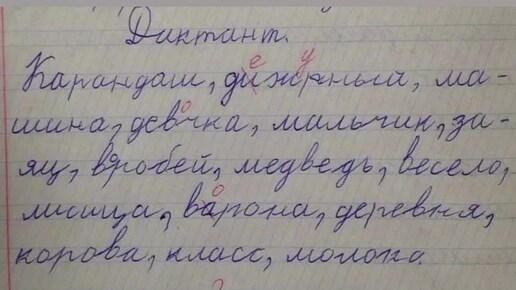 Диктант.
е у
Карандаш, дижрный, ма-
о
шина, девачка, мальчик, за-
яц, медведь, весело,
о
лисица, варона, деревня,
корова, класс, молоко.